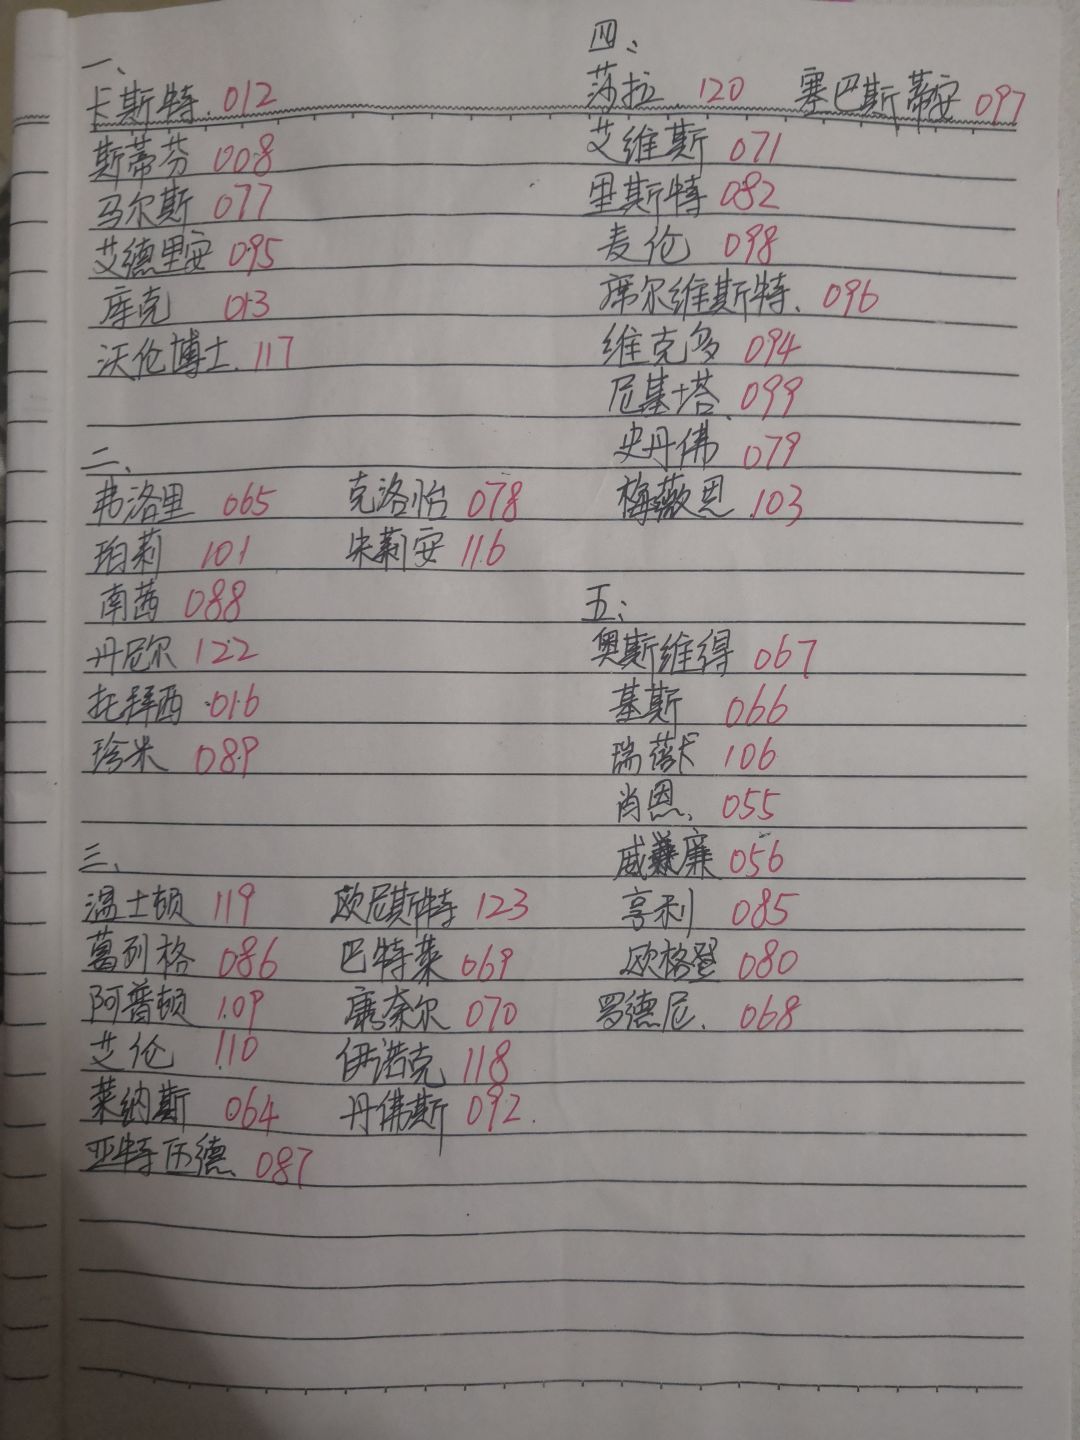 一、
卡斯特. 012
斯蒂芬 008
马尔斯 077
艾德里安 095
库克 013
沃伦博士. 117
二、
弗洛里 065 克洛怡 078
珀莉 101 朱莉安 116
南茜 088
丹尼尔 122
托拜西 016
珍米 089
三、
温士顿 119 欧尼斯特 123
葛列格 086 巴特莱 069
阿普顿 109 廉奈尔 070
艾伦 110 伊诺克 118
莱纳斯 064 丹佛斯 092.
亚特伍德、087
四、
莎拉 120 塞巴斯蒂安 097
艾维斯 071
里斯特 082
麦伦 098
席尔维斯特、096
维克多 094
尼基塔、099
史丹佛 079
梅薇恩 103
五、
奥斯维得 067
基斯 066
瑞 106
肖恩、055
威廉 056
亨利 085
欧格登 080
罗德尼、068